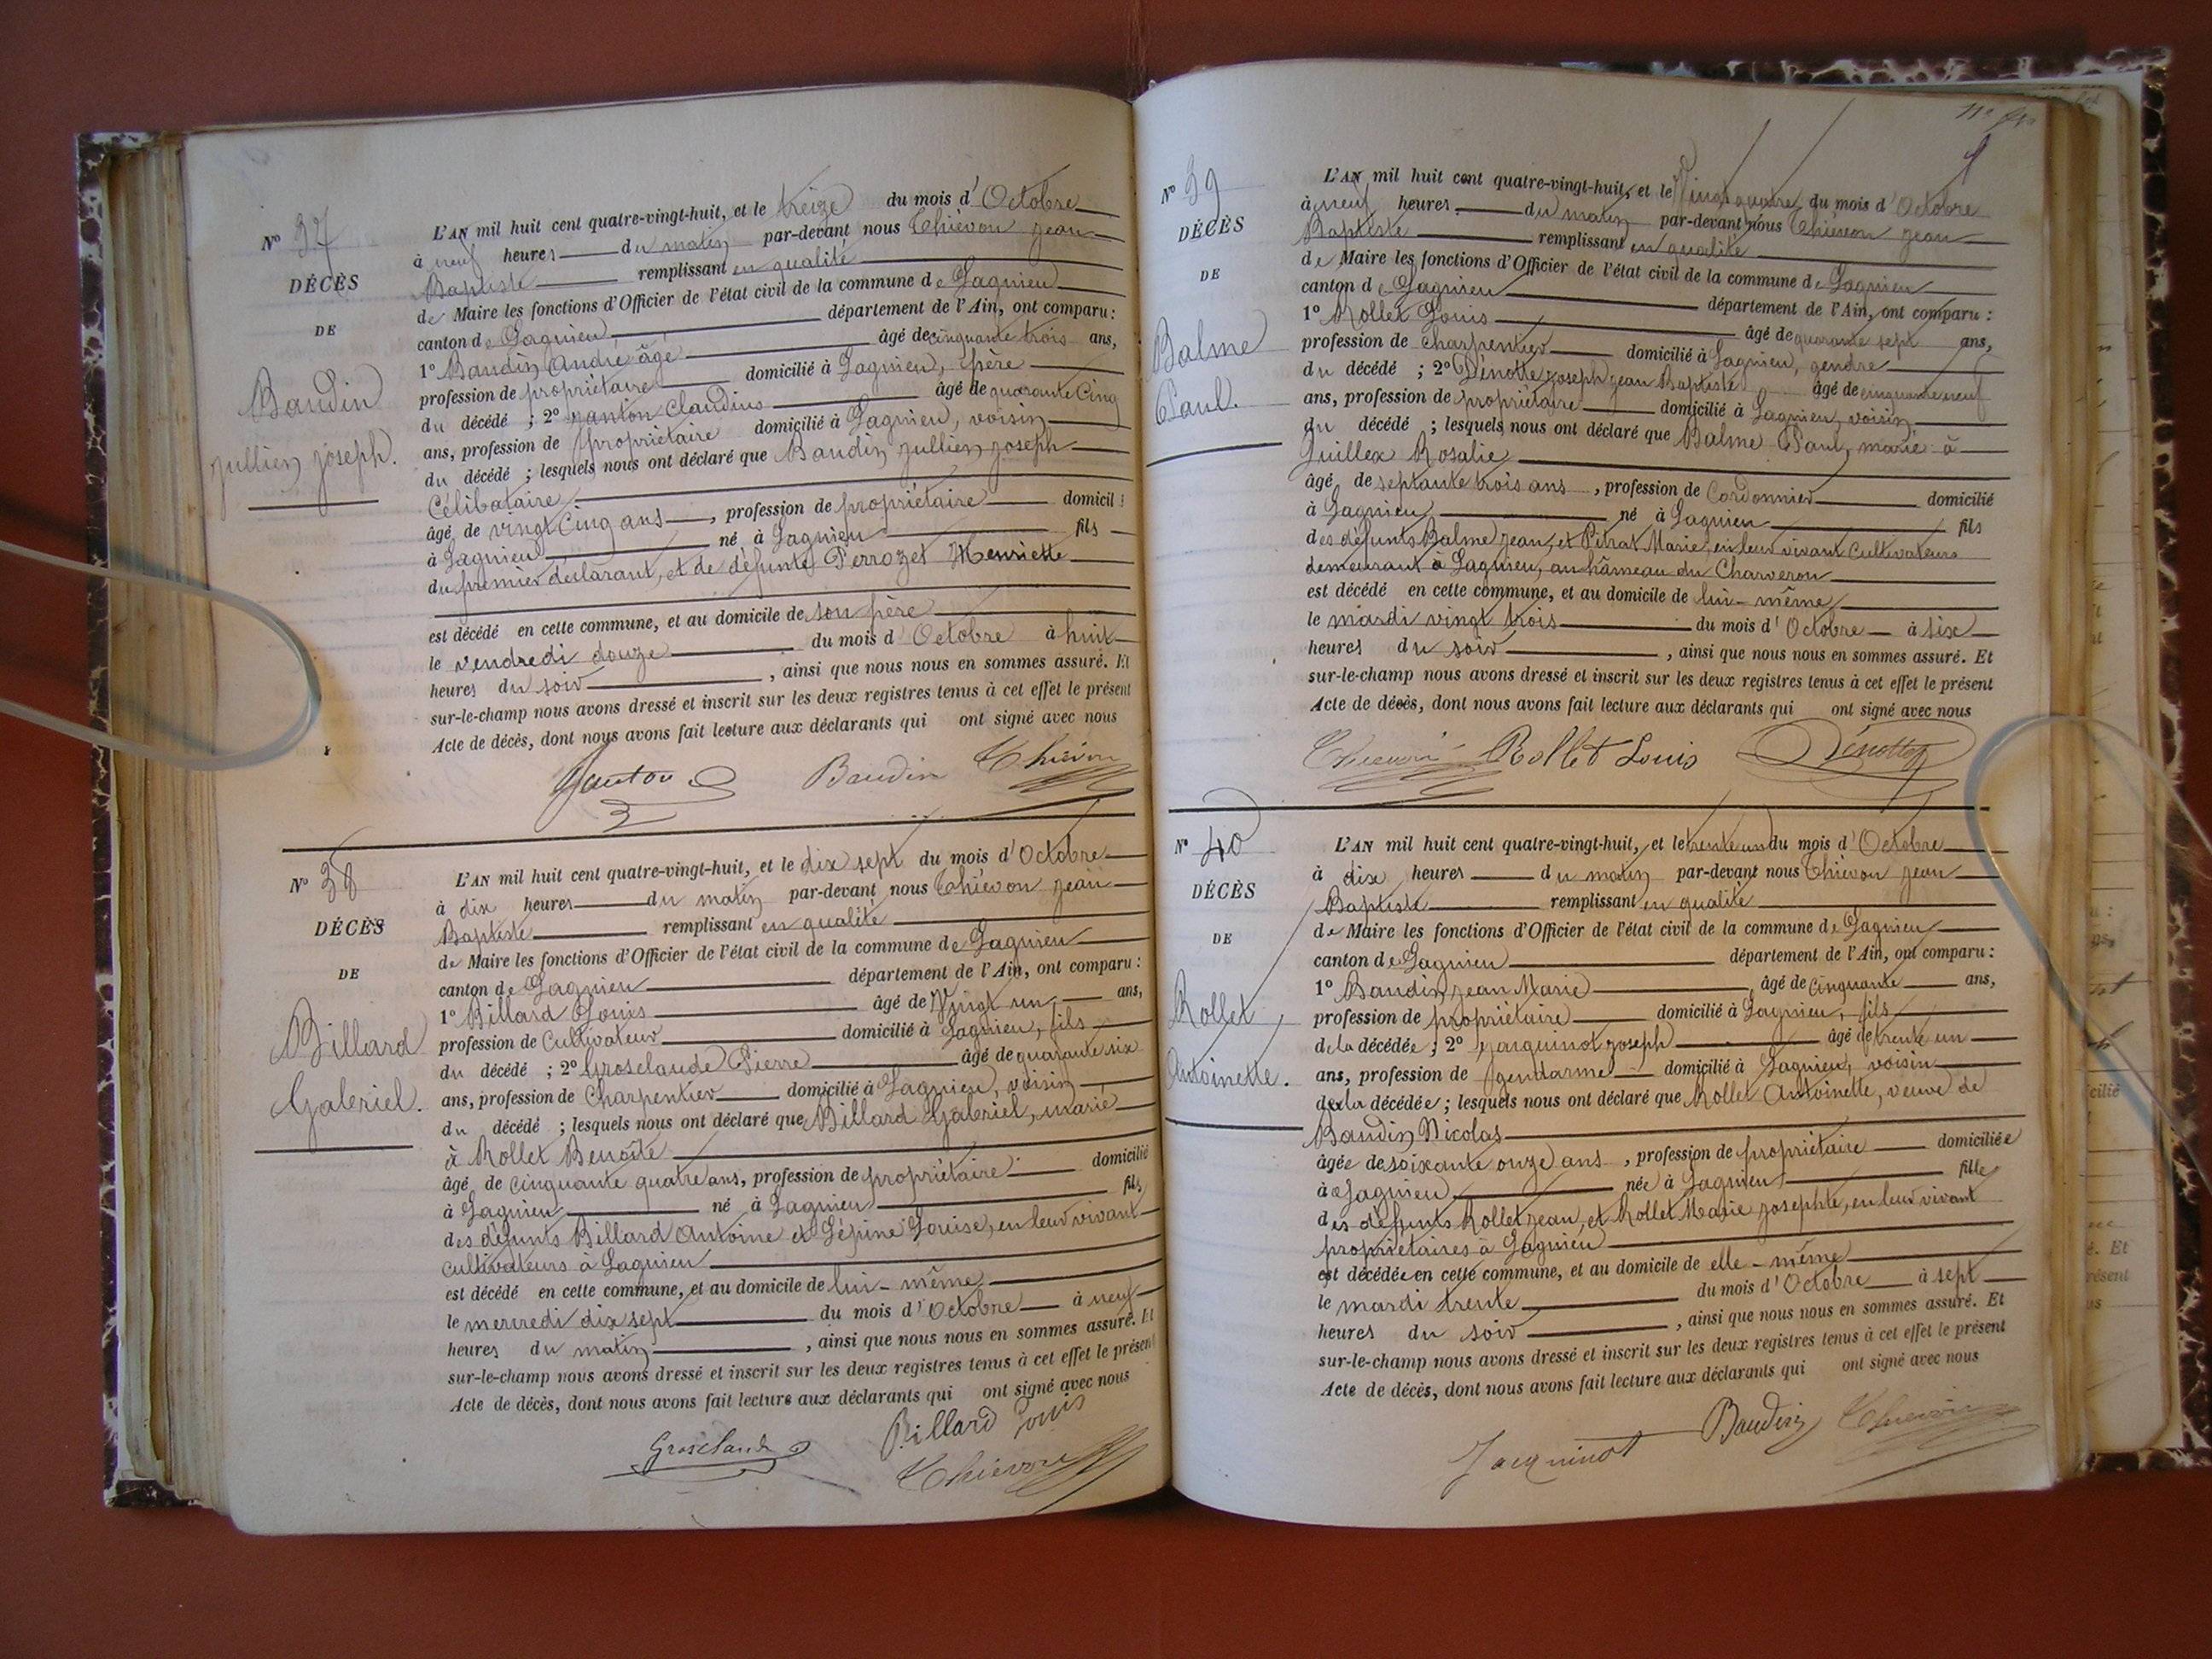 N° 37
DÉCÈS
DE
Baudin
Jullien Joseph.
L'AN mil huit cent quatre-vingt-huit, et le treize du mois d'Octobre
à neuf heures du matin par-devant nous Thiévon Jean
Baptiste remplissant en qualité
de Maire les fonctions d'Officier de l'état civil de la commune de Lagnieu
canton de Lagnieu département de l'Ain, ont comparu :
1° Baudin André âgé âgé de cinquante trois ans,
profession de propriétaire domicilié à Lagnieu, père
du décédé ; 2° Janton Claudius âgé de quarante cinq
ans, profession de propriétaire domicilié à Lagnieu, voisin
du décédé ; lesquels nous ont déclaré que Baudin Jullien Joseph
Célibataire
âgé de vingt cinq ans, profession de propriétaire domicil
à Lagnieu né à Lagnieu fils
du premier déclarant, et de défunte Perrozet Henriette
est décédé en cette commune, et au domicile de son père
le vendredi douze du mois d'Octobre à huit
heures du soir, ainsi que nous nous en sommes assuré. Et
sur-le-champ nous avons dressé et inscrit sur les deux registres tenus à cet effet le présent
Acte de décès, dont nous avons fait lecture aux déclarants qui ont signé avec nous
Janton Baudin Thiévon
N° 38
DÉCÈS
DE
Billard
Gabriel.
L'AN mil huit cent quatre-vingt-huit, et le dix sept du mois d'Octobre
à dix heures du matin par-devant nous Thiévon Jean
Baptiste remplissant en qualité
de Maire les fonctions d'Officier de l'état civil de la commune de Lagnieu
canton de Lagnieu département de l'Ain, ont comparu :
1° Billard Louis âgé de Vingt un ans,
profession de Cultivateur domicilié à Lagnieu, fils
du décédé ; 2° Grosclaude Pierre âgé de quarante six
ans, profession de Charpentier domicilié à Lagnieu, voisin
du décédé ; lesquels nous ont déclaré que Billard Gabriel, marié
à Rollet Benoîte
âgé de cinquante quatre ans, profession de propriétaire domicilié
à Lagnieu né à Lagnieu fils
des défunts Billard Antoine et Lépine Louise, en leur vivant
cultivateurs à Lagnieu
est décédé en cette commune, et au domicile de lui-même
le mercredi dix sept du mois d'Octobre à neuf
heures du matin, ainsi que nous nous en sommes assuré. Et
sur-le-champ nous avons dressé et inscrit sur les deux registres tenus à cet effet le présent
Acte de décès, dont nous avons fait lecture aux déclarants qui ont signé avec nous
Grosclaude Billard Louis
Thiévon
N° 39
DÉCÈS
DE
Balme
Paul.
L'AN mil huit cent quatre-vingt-huit, et le Vingt quatre du mois d'Octobre
à neuf heures du matin par-devant nous Thiévon Jean
Baptiste remplissant en qualité
de Maire les fonctions d'Officier de l'état civil de la commune de Lagnieu
canton de Lagnieu département de l'Ain, ont comparu :
1° Rollet Louis âgé de quarante sept ans,
profession de Charpentier domicilié à Lagnieu, gendre
du décédé ; 2° Dénotte Joseph Jean Baptiste âgé de cinquante neuf
ans, profession de propriétaire domicilié à Lagnieu, voisin
du décédé ; lesquels nous ont déclaré que Balme Paul, marié à
Guillex Rosalie
âgé de septante trois ans, profession de Cordonnier domicilié
à Lagnieu né à Lagnieu fils
des défunts Balme Jean, et Pitrat Marie, en leur vivant cultivateurs
demeurant à Lagnieu, au hâmeau du Charveron
est décédé en cette commune, et au domicile de lui-même
le mardi vingt trois du mois d'Octobre à six
heures du soir, ainsi que nous nous en sommes assuré. Et
sur-le-champ nous avons dressé et inscrit sur les deux registres tenus à cet effet le présent
Acte de décès, dont nous avons fait lecture aux déclarants qui ont signé avec nous
Thiévon Rollet Louis Dénotte
N° 40
DÉCÈS
DE
Rollet
Antoinette.
L'AN mil huit cent quatre-vingt-huit, et le trente un du mois d'Octobre
à dix heures du matin par-devant nous Thiévon Jean
Baptiste remplissant en qualité
de Maire les fonctions d'Officier de l'état civil de la commune de Lagnieu
canton de Lagnieu département de l'Ain, ont comparu :
1° Baudin Jean Marie, âgé de Cinquante ans,
profession de propriétaire domicilié à Lagnieu, fils
de la décédée ; 2° Jacquinot Joseph âgé de trente un
ans, profession de gendarme domicilié à Lagnieu, voisin
de la décédée ; lesquels nous ont déclaré que Rollet Antoinette, veuve de
Baudin Nicolas
âgée de soixante onze ans, profession de propriétaire domiciliée
à Lagnieu née à Lagnieu fille
des défunts Rollet Jean, et Rollet Marie Josephte, en leur vivant
propriétaires à Lagnieu
est décédée en cette commune, et au domicile de elle-même
le mardi trente du mois d'Octobre à sept
heures du soir, ainsi que nous nous en sommes assuré. Et
sur-le-champ nous avons dressé et inscrit sur les deux registres tenus à cet effet le présent
Acte de décès, dont nous avons fait lecture aux déclarants qui ont signé avec nous
Jacquinot Baudin Thiévon